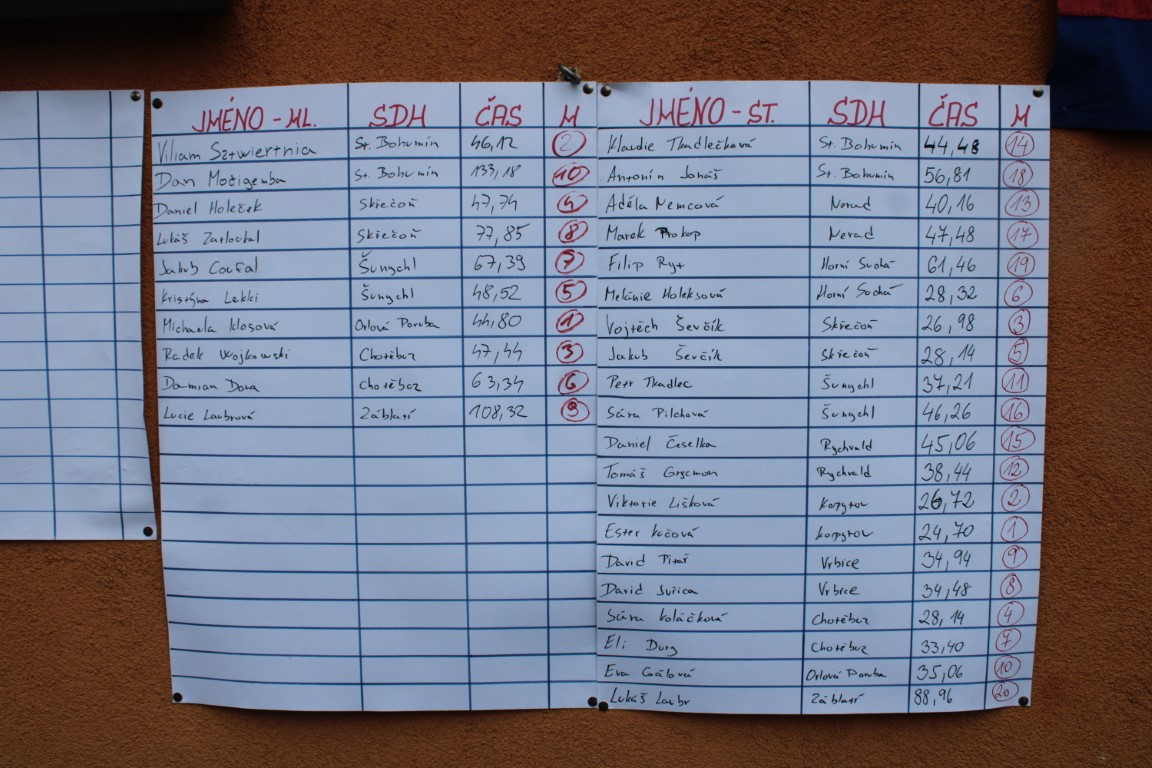 JMÉNO - ML. SDH ČAS M
Viliam Sztwiertnia St. Bohumín 46,12 2
Dan Močigemba St. Bohumín 133,18 10
Daniel Holeček Skřečoň 47,74 4
Lukáš Skřečoň 77,85 8
Jakub Coufal Šunychl 67,39 7
Kristýna Lekki Šunychl 48,52 5
Michaela Klosová Orlová Poruba 44,80 1
Radek Wojkowski Chotěbuz 47,44 3
Damian Dora Chotěbuz 63,34 6
Lucie Laubrová Záblatí 108,32 9
JMÉNO - ST. SDH ČAS M
Klaudie Tkadlečková St. Bohumín 44,48 14
Antonín Jonáš St. Bohumín 56,81 18
Adéla Nemcová Nerad 40,16 13
Marek Prokop Nerad 47,48 17
Filip Ryt Horní Suchá 61,46 19
Melánie Holeksová Horní Suchá 28,32 6
Vojtěch Ševčík Skřečoň 26,98 3
Jakub Ševčík Skřečoň 28,14 5
Petr Tkadlec Šunychl 37,21 11
Sára Pilchová Šunychl 46,26 16
Daniel Češelka Rychvald 45,06 15
Tomáš Grycman Rychvald 38,44 12
Viktorie Lišková Kopytov 26,72 2
Ester Kočová Kopytov 24,70 1
David Vrbice 34,94 9
David Juřica Vrbice 34,48 8
Sára Koláčková Chotěbuz 28,14 4
Eli Chotěbuz 33,40 7
Eva Gálová Orlová Poruba 35,06 10
Lukáš Laubr Záblatí 88,96 20